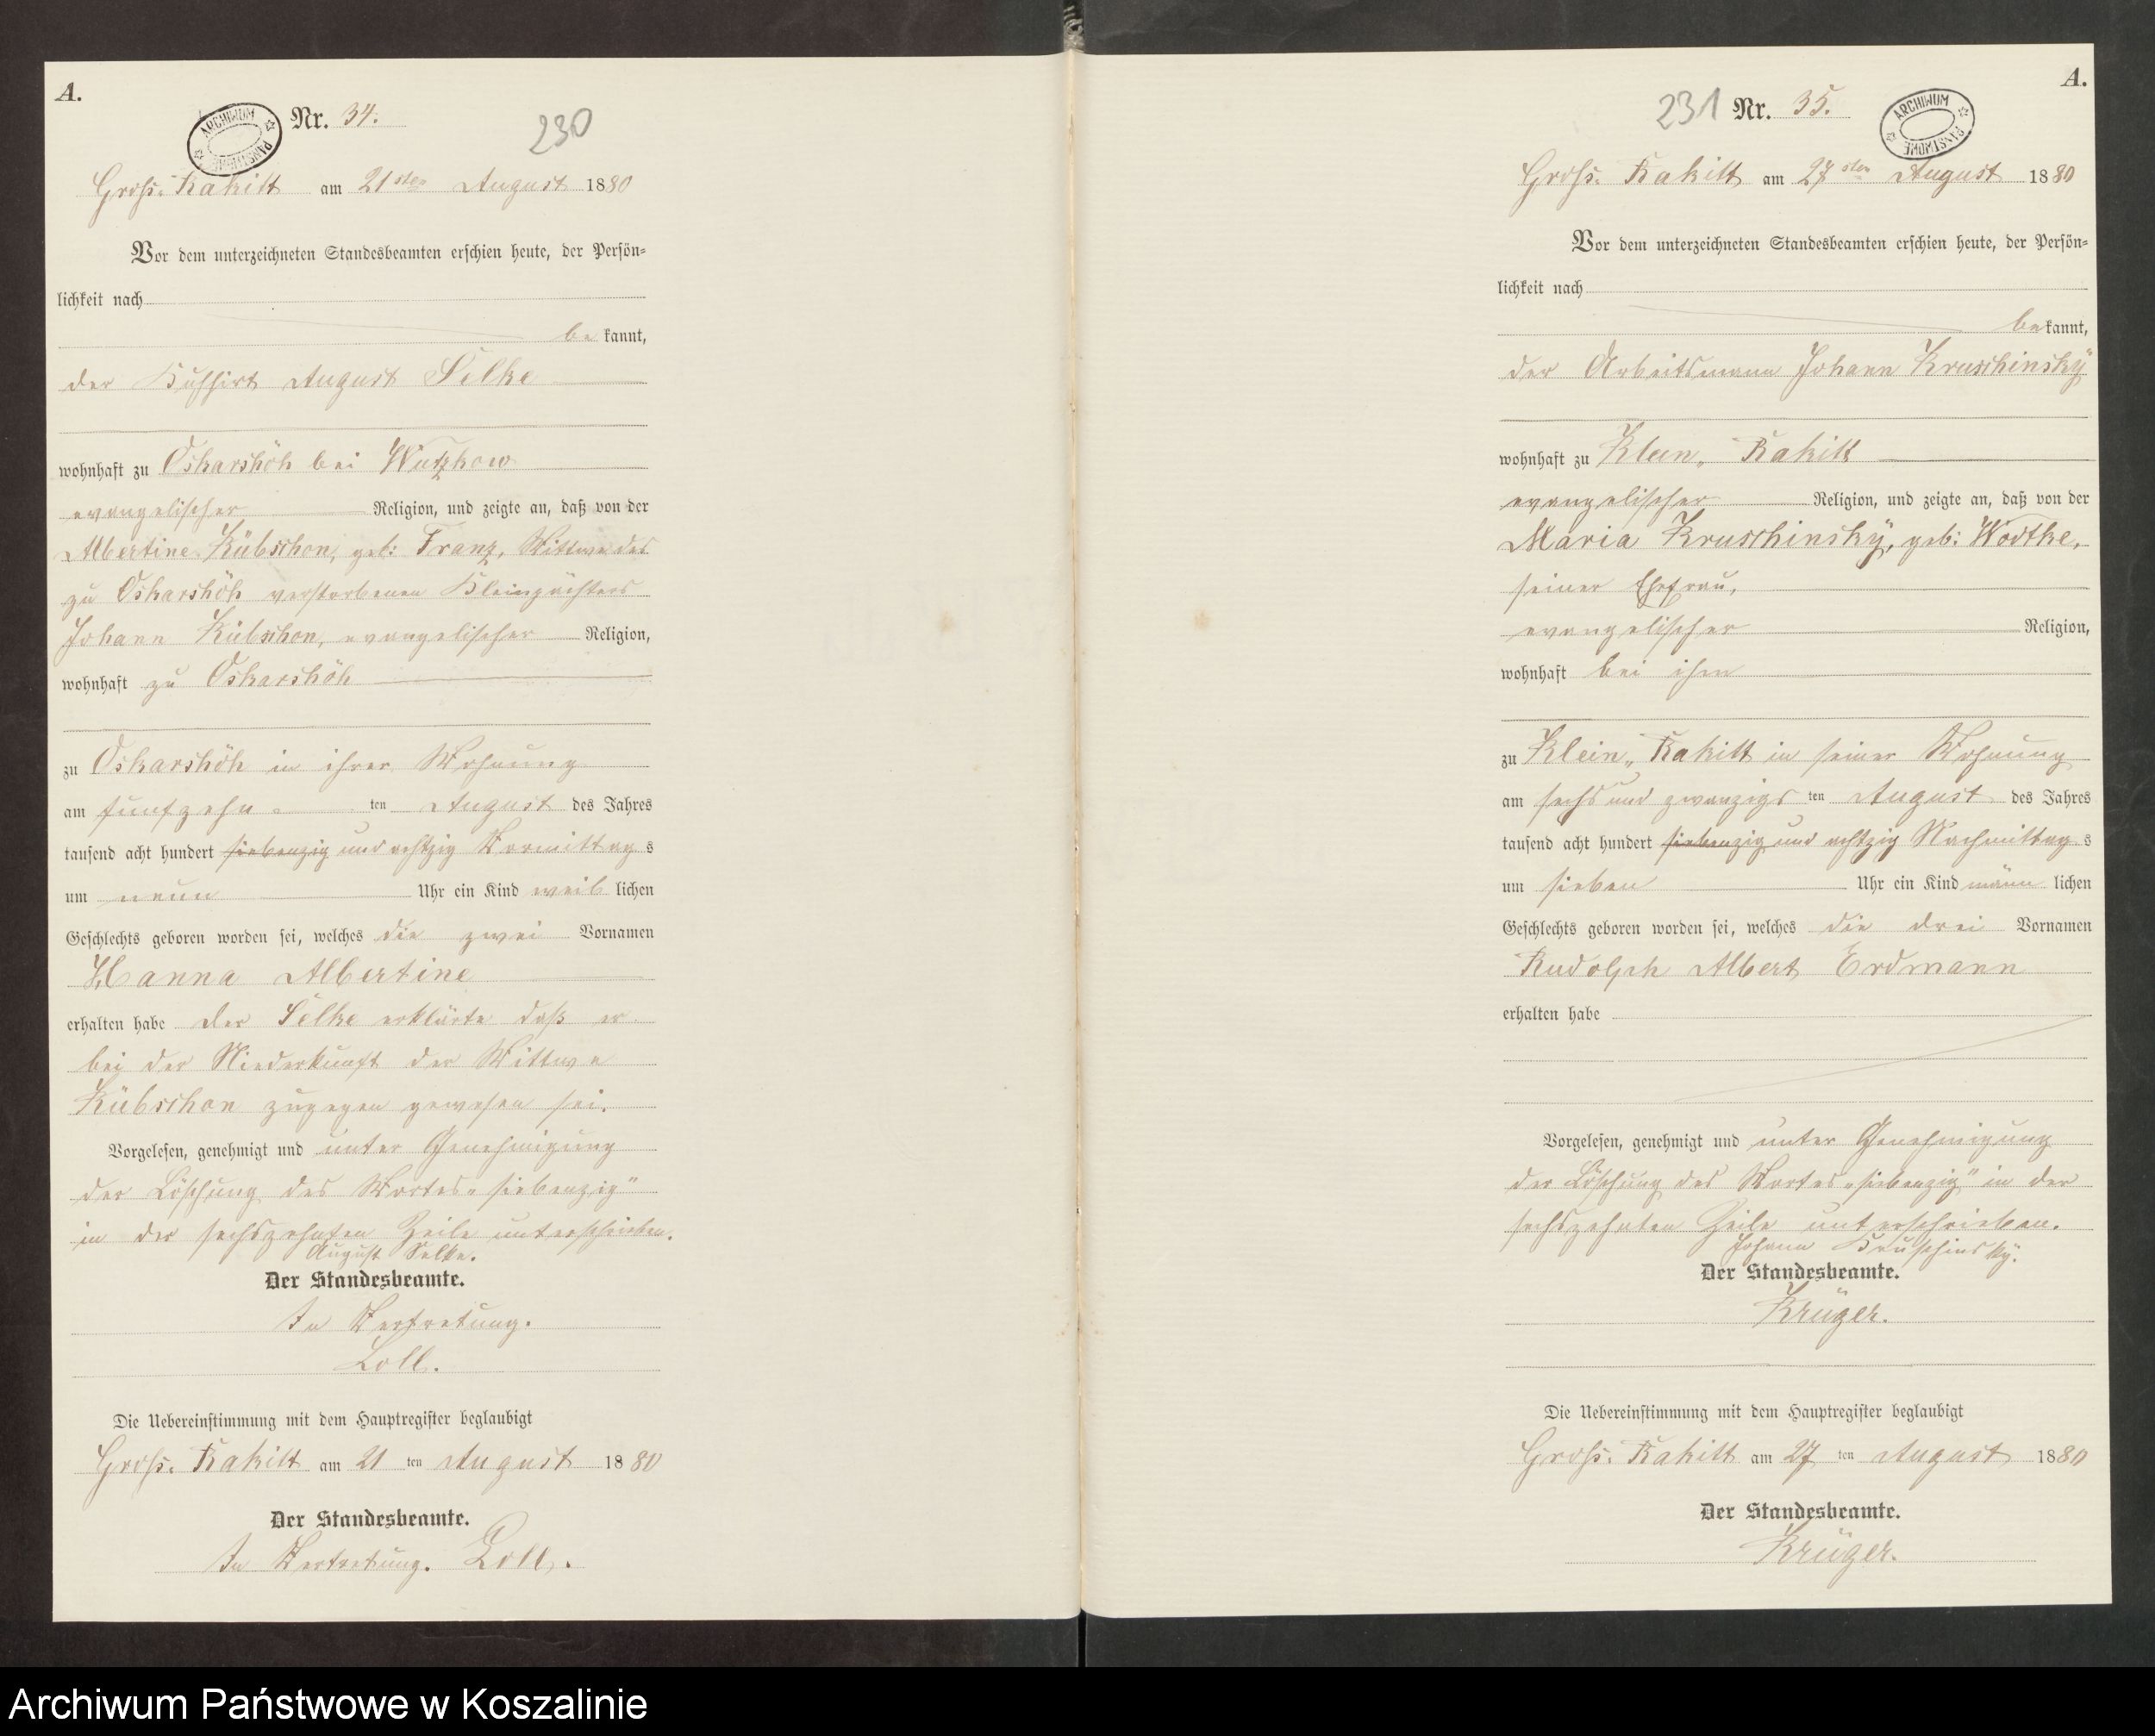 A.
ARCHIWUM PAŃSTWOWE
Nr. 34.
230
Groß-Rakitt am 21sten August 1880
Vor dem unterzeichneten Standesbeamten erschien heute, der Persön-
lichkeit nach
be kannt,
der Kuhhirt August Selke
wohnhaft zu Oskarshöh bei Wutzkow
evangelischer Religion, und zeigte an, daß von der
Albertine Kübschon, geb: Franz, Wittwe des
zu Oskarshöh verstorbenen Kleinpächters
Johann Kübschon, evangelischer Religion,
wohnhaft zu Oskarshöh
zu Oskarshöh in ihrer Wohnung
am fünfzehn ten August des Jahres
tausend acht hundert siebenzig und achtzig Vormittag s
um neun Uhr ein Kind weib lichen
Geschlechts geboren worden sei, welches die zwei Vornamen
Hanna Albertine
erhalten habe Der Selke erklärte daß er
bei der Niederkunft der Wittwe
Kübschon zugegen gewesen sei.
Vorgelesen, genehmigt und unter Genehmigung
der Löschung des Wortes „siebenzig"
in der sechszehnten Zeile unterschrieben.
August Selke.
Der Standesbeamte.
In Vertretung.
Loll.
Die Uebereinstimmung mit dem Hauptregister beglaubigt
Groß-Rakitt am 21 ten August 1880
Der Standesbeamte.
In Vertretung. Loll.
A.
231 Nr. 35.
ARCHIWUM PAŃSTWOWE
Groß-Rakitt am 27sten August 1880
Vor dem unterzeichneten Standesbeamten erschien heute, der Persön-
lichkeit nach
be kannt,
der Arbeitsmann Johann Kruschinsky
wohnhaft zu Klein-Rakitt
evangelischer Religion, und zeigte an, daß von der
Maria Kruschinsky, geb: Wodtke,
seiner Ehefrau,
evangelischer Religion,
wohnhaft bei ihm
zu Klein-Rakitt in seiner Wohnung
am sechs und zwanzigs ten August des Jahres
tausend acht hundert siebenzig und achtzig Nachmittag s
um sieben Uhr ein Kind männ lichen
Geschlechts geboren worden sei, welches die drei Vornamen
Rudolph Albert Erdmann
erhalten habe
Vorgelesen, genehmigt und unter Genehmigung
der Löschung des Wortes „siebenzig" in der
sechszehnten Zeile unterschrieben.
Johann Kruschinsky.
Der Standesbeamte.
Krüger.
Die Uebereinstimmung mit dem Hauptregister beglaubigt
Groß-Rakitt am 27 ten August 1880
Der Standesbeamte.
Krüger.
Archiwum Państwowe w Koszalinie